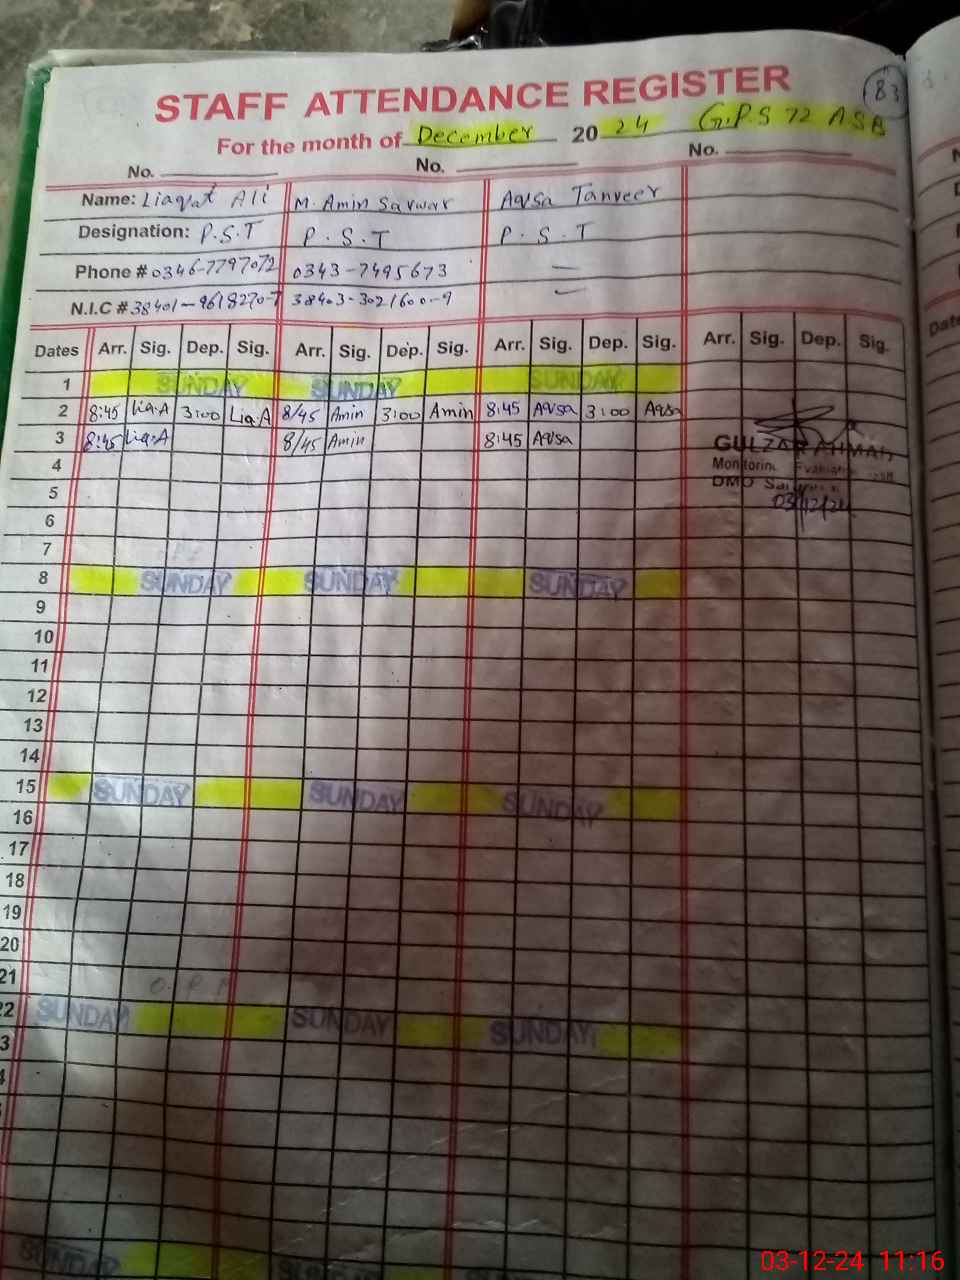 83
STAFF ATTENDANCE REGISTER
For the month of December 2024 G.P.S 72 ASB
No. No. No.
Name: Liaqat Ali M. Amin Sarwar Aqsa Tanveer
Designation: P.S.T P.S.T P.S.T
Phone # 0346-7797072 0343-7495673 —
N.I.C # 38401-9618270-7 38403-3021600-9 —
Dates Arr. Sig. Dep. Sig. Arr. Sig. Dep. Sig. Arr. Sig. Dep. Sig. Arr. Sig. Dep. Sig.
1 SUNDAY SUNDAY SUNDAY
2 8:45 Liq.A 3:00 Liq.A 8/45 Amin 3:00 Amin 8:45 Aqsa 3:00 Aqsa
3 8:45 Liq.A 8/45 Amin 8:45 Aqsa
GULZAR AHMAD
Monitoring
DMO
03/12/24
4
5
6
7
8 SUNDAY SUNDAY SUNDAY
9
10
11
12
13
14
15 SUNDAY SUNDAY SUNDAY
16
17
18
19
20
21
22 SUNDAY SUNDAY SUNDAY
3
SUNDAY
03-12-24 11:16